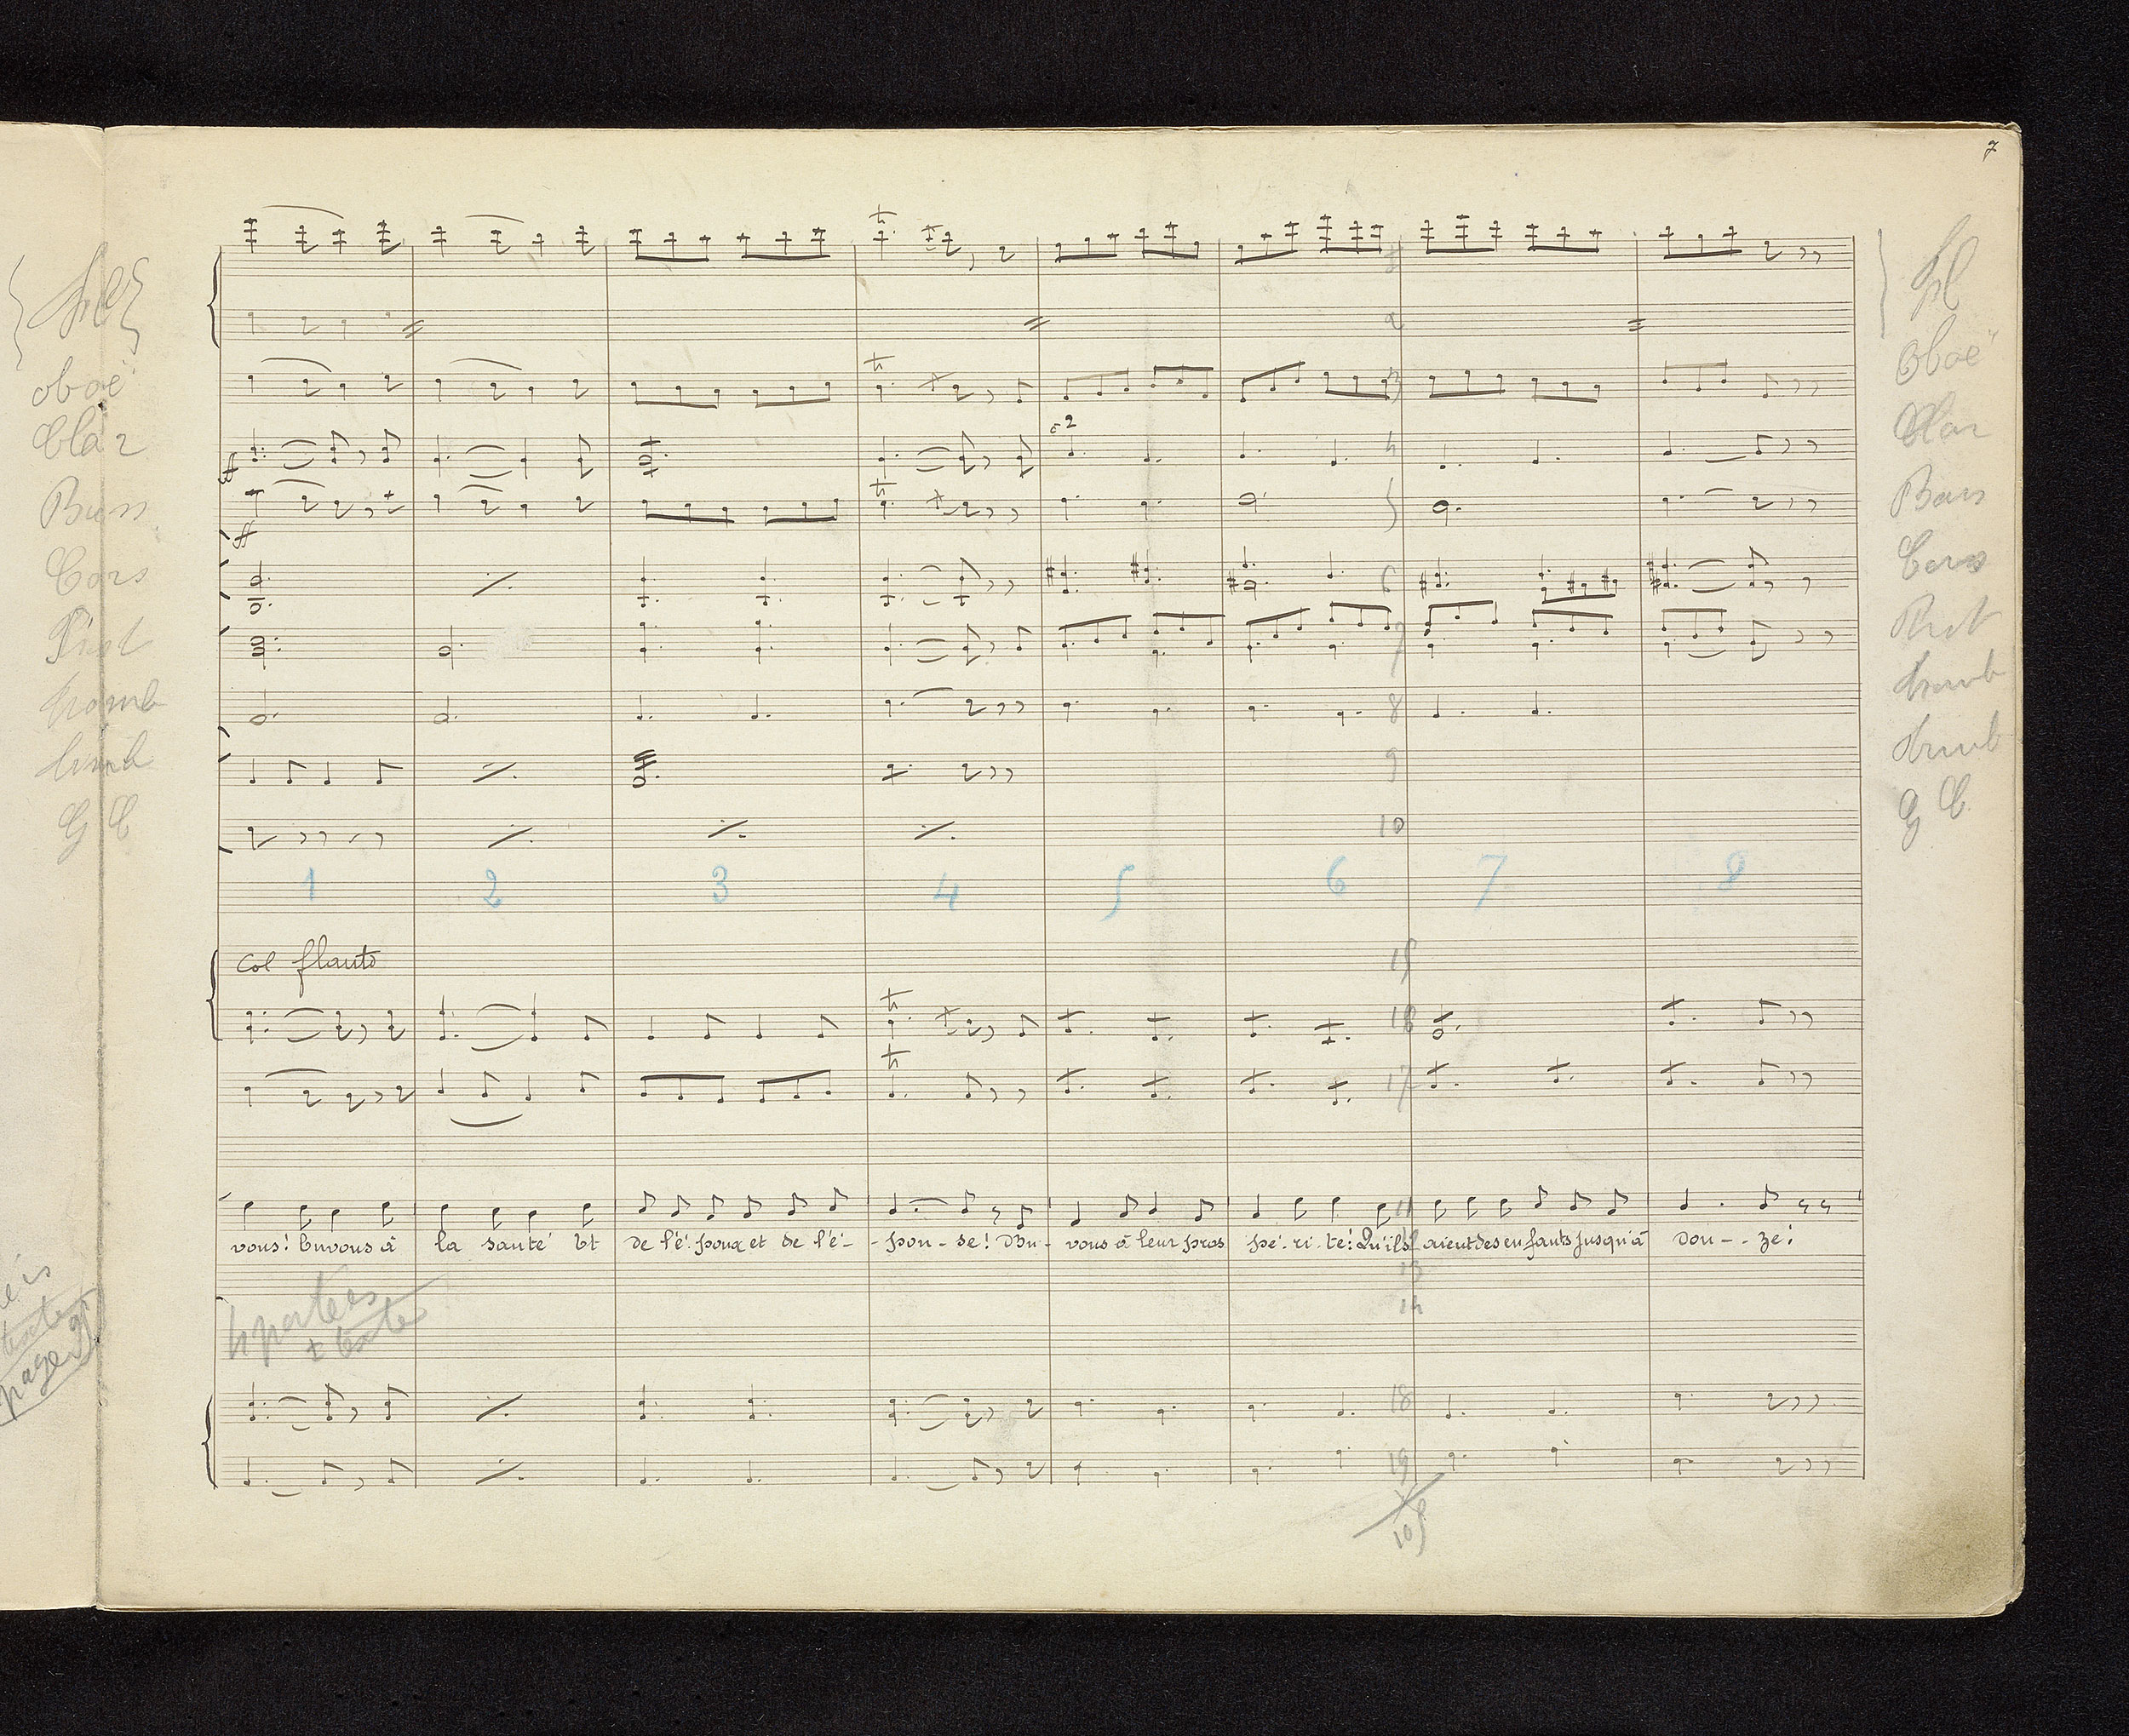 7
fl
oboë
Clar
Bass
Cors
Pist
tromb
timb
G C
fl
Oboë
Clar
Bass
Cors
Pist
tromb
timb
G C
ff
ff
2
3
4
5
6
7
8
9
10
1 2 3 4 5 6 7 8
Col flauto
15
16
17
11
vous! buvons à la santé Et de l'é-poux et de l'é-pou-se! Bu-vons à leur pros pé-ri-té! Qu'ils aient des enfants jusqu'à dou--ze!
13
14
4 portées
+ texte
texte
page 9
18
19
105